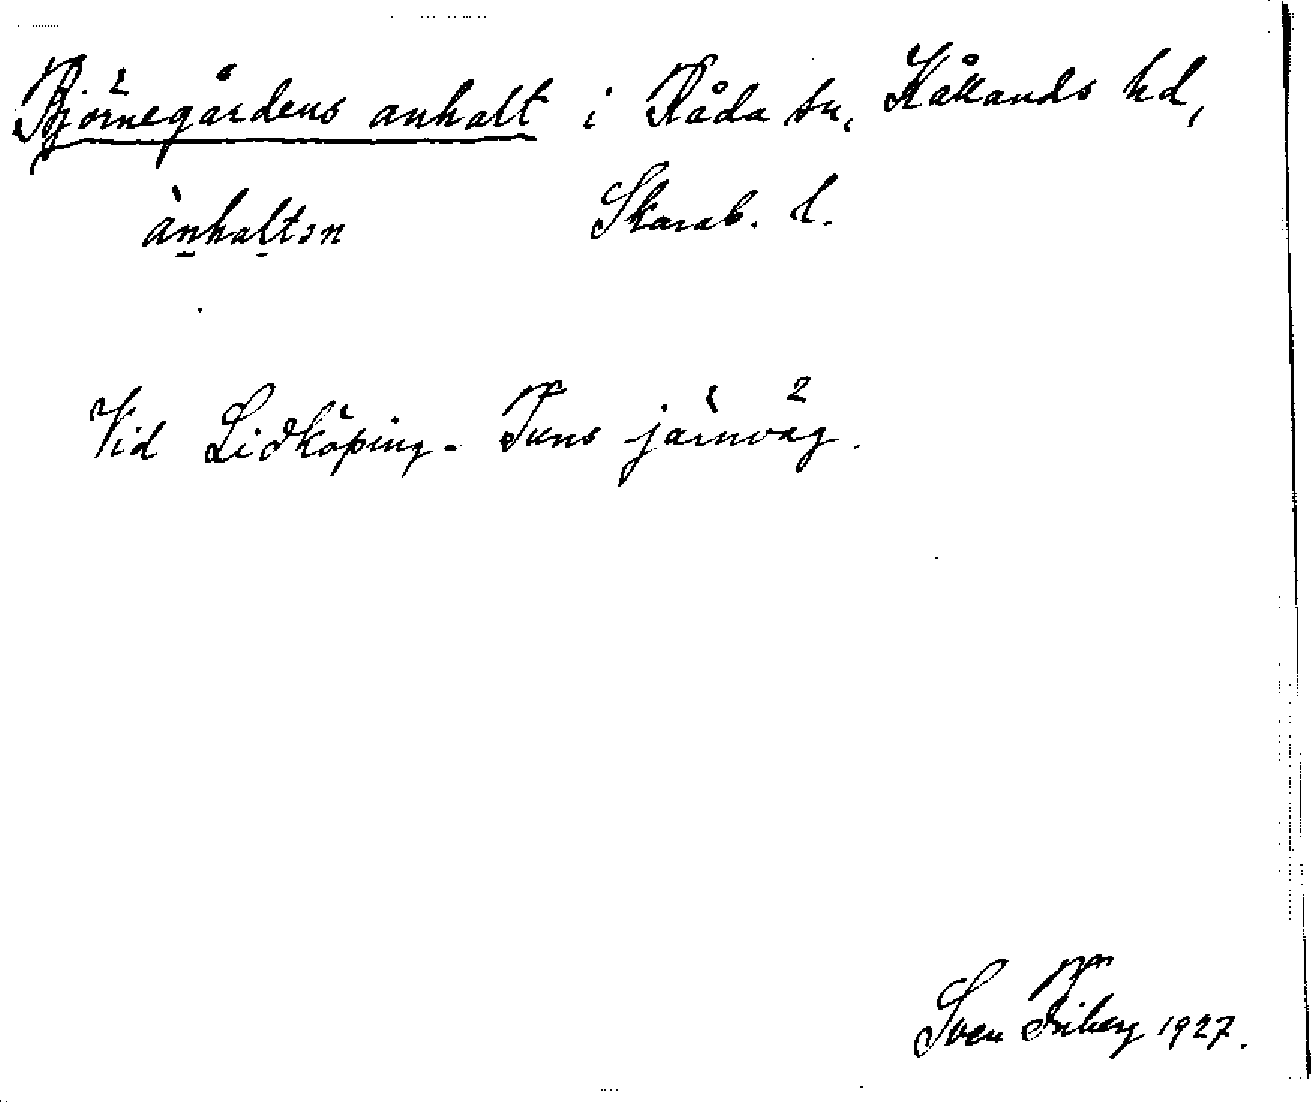 Björnegårdens anhalt i Råda sn, Kållands hd,
ànhaltən Skarab. l.
Vid Lidköping - Tuns järnväg.
Sven Friberg 1927.